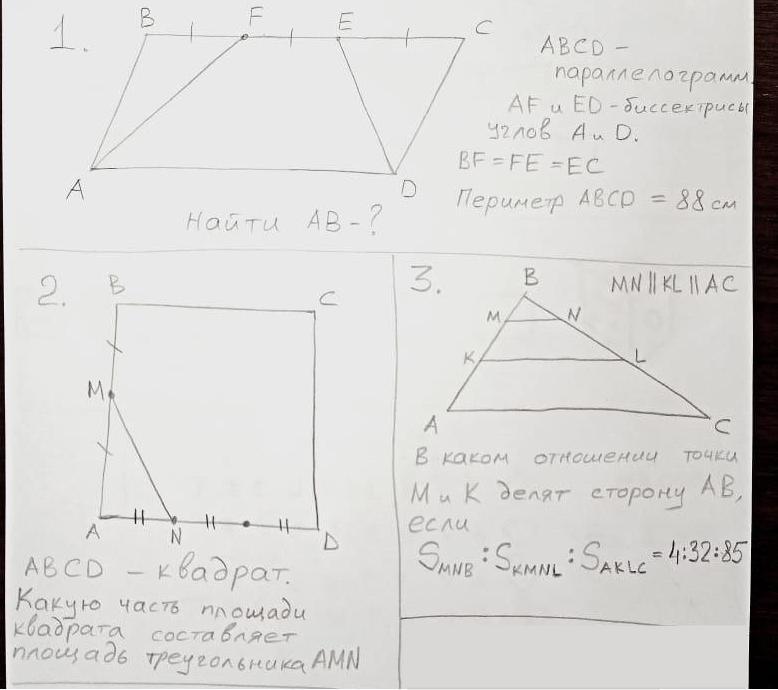 1.
B F E C
A D
ABCD –
параллелограмм.
AF и ED – биссектрисы
углов A и D.
BF = FE = EC
Периметр ABCD = 88 см
Найти AB – ?
2.
B C
M
A N D
ABCD – квадрат.
Какую часть площади
квадрата составляет
площадь треугольника AMN
3.
B MN || KL || AC
M N
K L
A C
В каком отношении точки
M и K делят сторону AB,
если
S MNB : S KMNL : S AKLC = 4:32:85